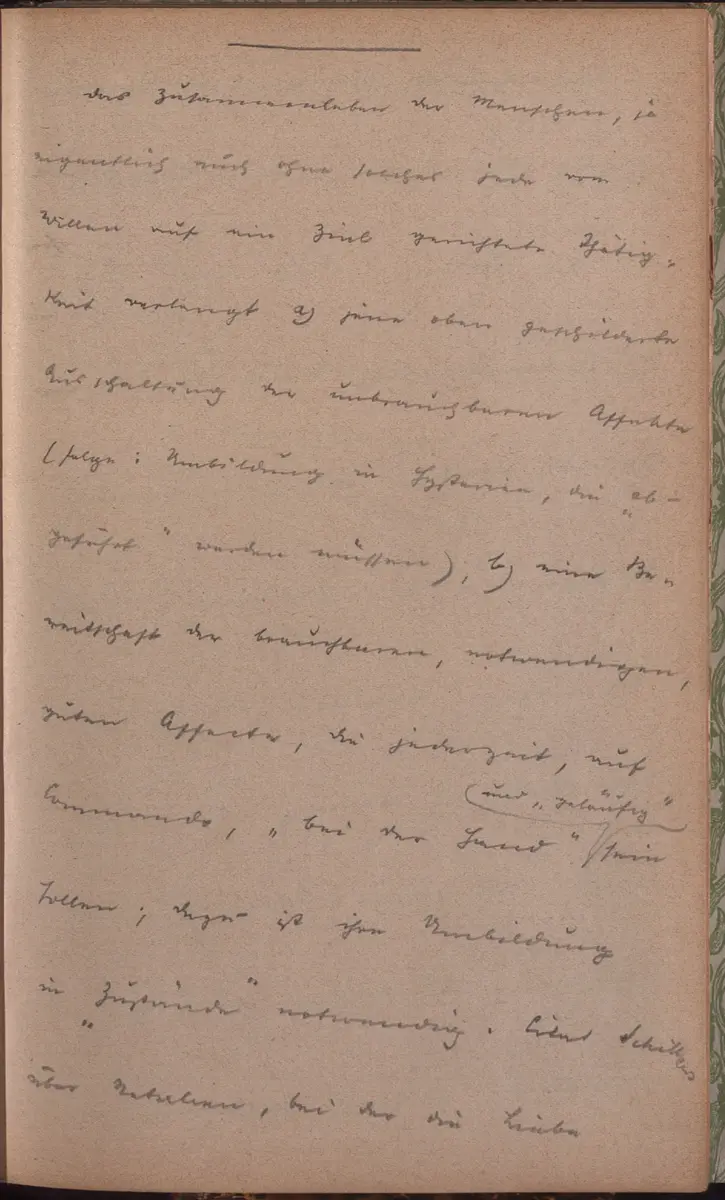 das Zusammenleben der Menschen, ja
eigentlich auch ohne solches jede vom
Willen auf ein Ziel gerichtete Thätig-
keit verlangt a) jene oben geschilderte
Ausschaltung der unbrauchbaren Affekte
(folge: Umbildung in Hysterie, die „ab-
geführt“ werden müssen), b) eine Be-
reitschaft der brauchbaren, notwendigen,
guten Affecte, die jederzeit, „auf
und „geläufig“
Commando“, „bei der Hand“ sein
sollen; dazu ist ihre Umbildung
in „Zustände“ notwendig. Citat Schillers
über Natalien, bei der die Liebe